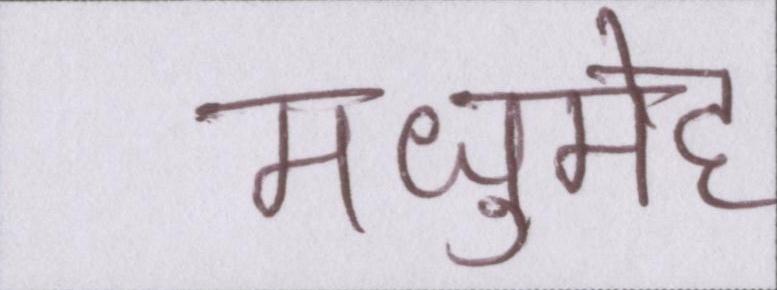 मधुमेह